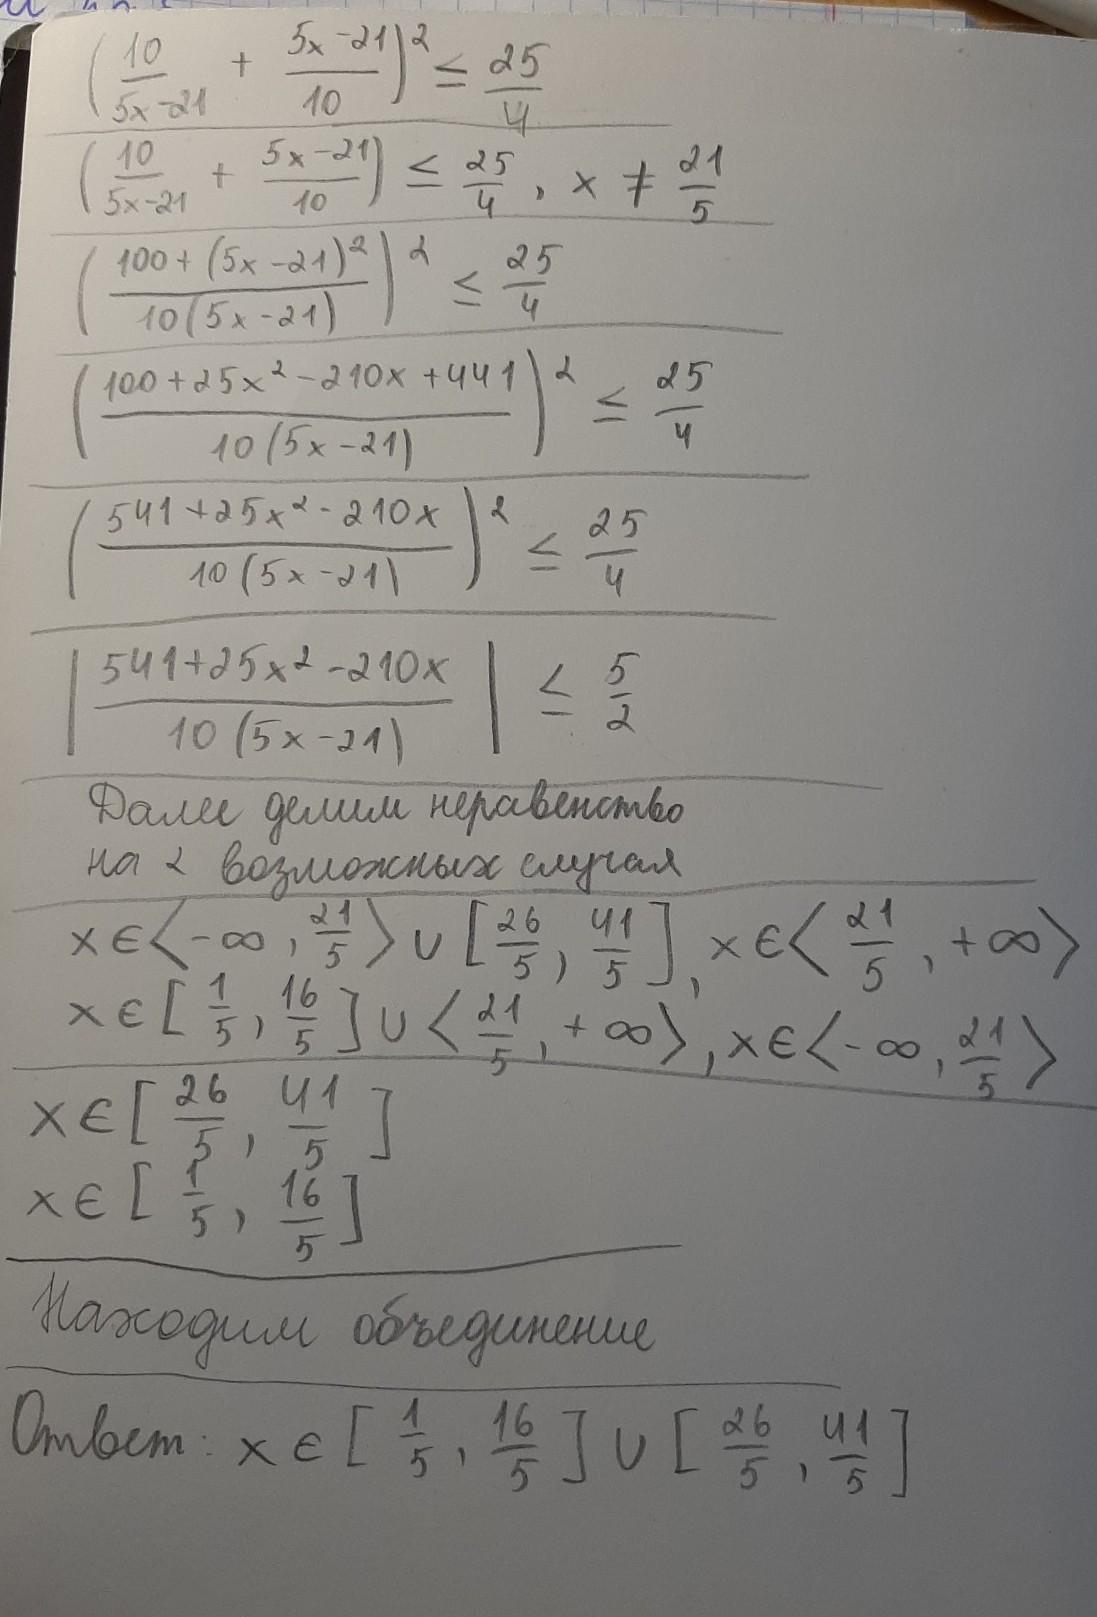 (10/(5x-21) + (5x-21)/10)² ≤ 25/4
(10/(5x-21) + (5x-21)/10) ≤ 25/4, x ≠ 21/5
((100+(5x-21)²)/(10(5x-21)))² ≤ 25/4
((100+25x²-210x+441)/(10(5x-21)))² ≤ 25/4
((541+25x²-210x)/(10(5x-21)))² ≤ 25/4
|(541+25x²-210x)/(10(5x-21))| ≤ 5/2
Далее делим неравенство
на 2 возможных случая
x∈⟨-∞, 21/5⟩∪[26/5, 41/5], x∈⟨21/5, +∞⟩
x∈[1/5, 16/5]∪⟨21/5, +∞⟩, x∈⟨-∞, 21/5⟩
x∈[26/5, 41/5]
x∈[1/5, 16/5]
Находим объединение
Ответ: x∈[1/5, 16/5]∪[26/5, 41/5]